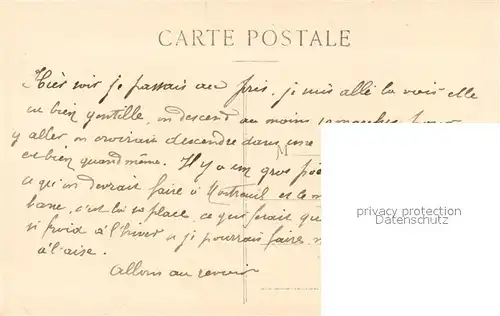 CARTE POSTALE
Hier soir je passais au je suis allé la voir elle
est bien gentille, on descend au moins
y aller on croirait descendre dans une
est bien quand même. Il y a un gros
ce qu'on devrait faire à Montreuil est le
c'est là sa place, ce qui ferait que
si froid à l'hiver je pourrais faire
à l'aise.
Allons au revoir
privacy protection
Datenschutz